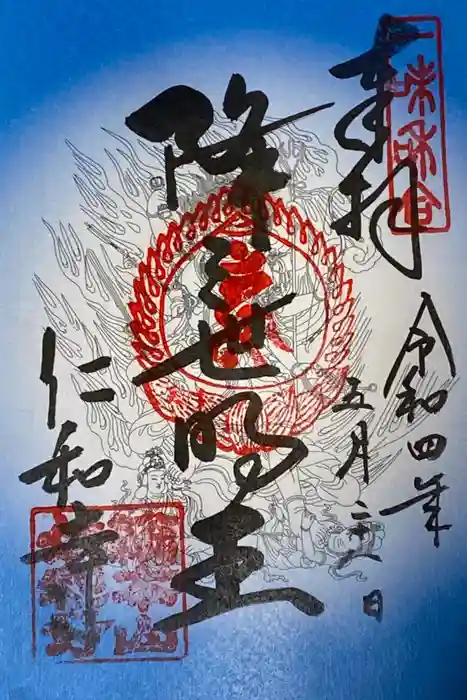 奉拝
令和四年
五月二十八日
降三世明王
仁和寺